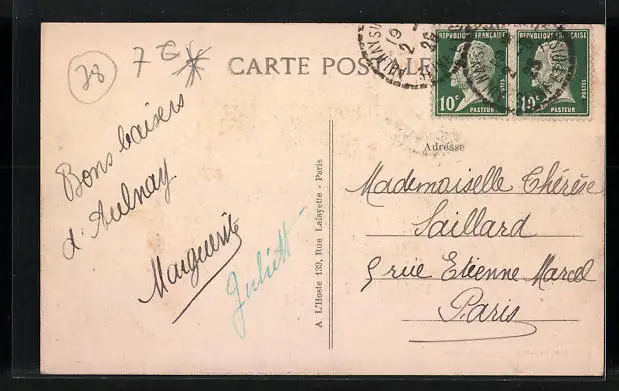 78
7 €
CARTE POSTALE
REPVBLIQUE FRANÇAISE
10c
POSTES
PASTEUR
REPVBLIQUE FRANÇAISE
10c
POSTES
PASTEUR
AULNAY
19
2
26
Adresse
Bons baisers
d'Aulnay
Marguerite
Juliette
A. L'Hoste 139, Rue Lafayette - Paris
Mademoiselle Thérèse
Saillard
5 rue Etienne Marcel
Paris